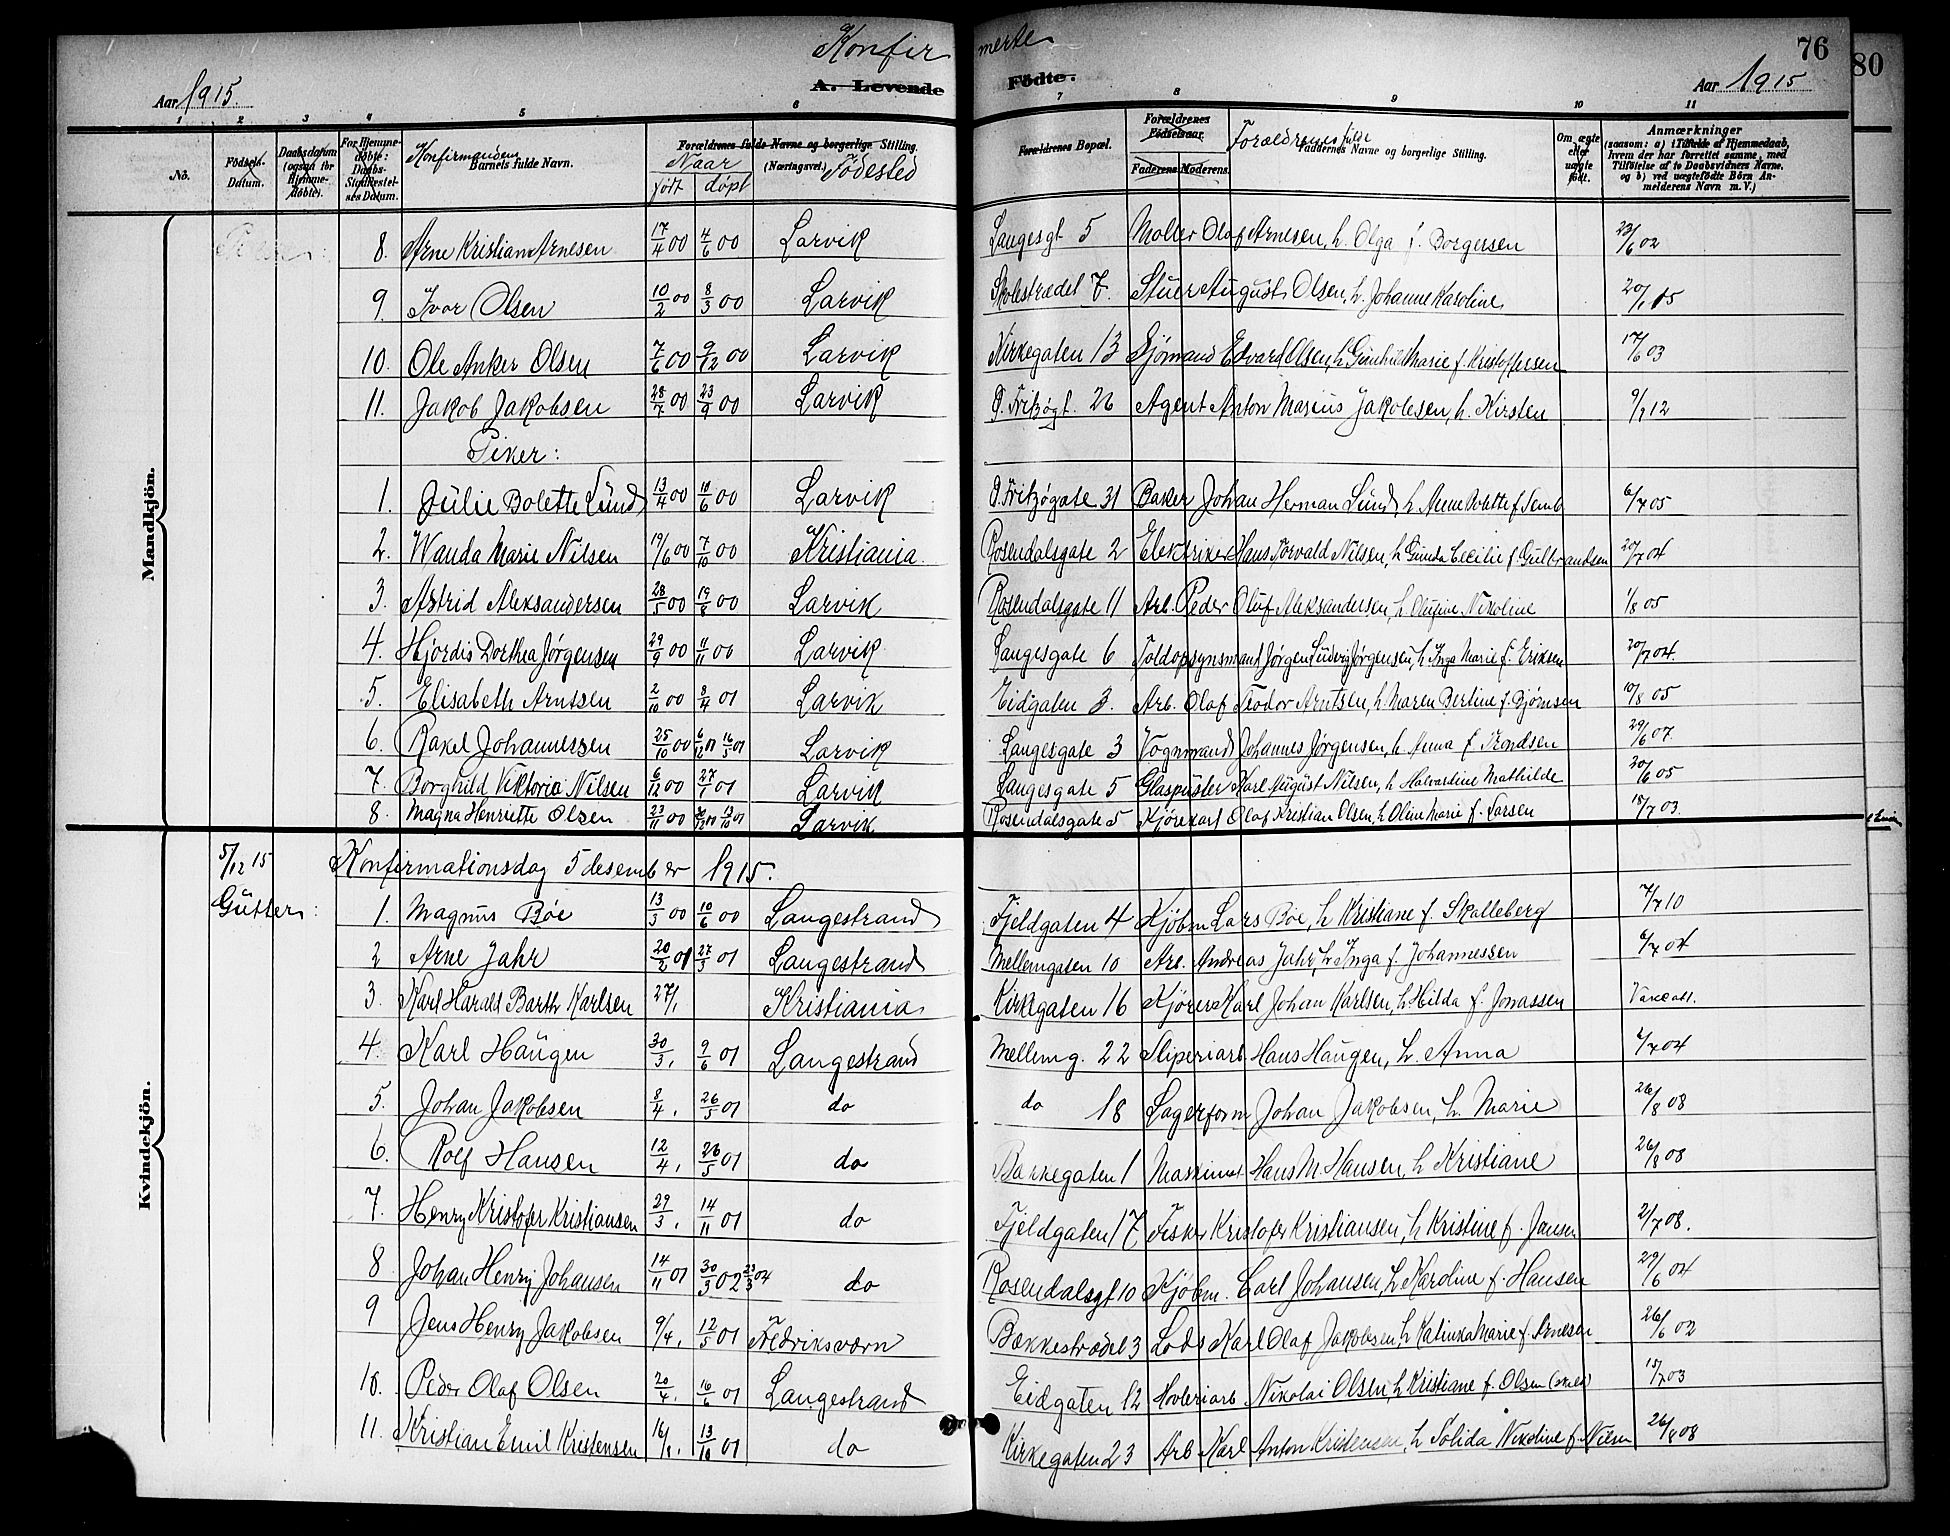 Konfirmerte
76
80
Aar 1915.
A. Levende Födte.
Aar 1915
1 2 3 4 5 6 7 8 9 10 11
No. Födsels-Datum. Daabsdatum (ogsaa for Hjemmedöbte). For Hjemmedöbte: Daabs-Stadfæstelses Datum. Konfirmandens Barnets fulde Navn. Forældrenes fulde Navne og borgerlige Stilling. (Næringsvei.) Naar født døpt Fødested Forældrenes Bopæl. Forældrenes Födselsaar. Faderens Moderens. Forældrenes fulde Faddernes Navne og borgerlige Stilling. Om ægte eller uægte födt. Anmærkninger (saasom: a) i Tilfælde af Hjemmedaab, hvem der har forrettet samme, med Tilföielse af to Daabsvidners Navne, og b) ved uægtefödte Börn Anmelderens Navn m. V.)
Mandkjön.
8. Arne Kristian Arnesen 17/4 00 4/6 00 Larvik Langesgt 5 Møller Olaf Arnesen, h. Olga f. Borgersen 23/6 02
9. Ivar Olsen 10/2 00 8/3 00 Larvik Skolestrædet 7. Stuer August Olsen, h. Johanne Karoline 20/1 15
10. Ole Anker Olsen 7/6 00 9/12 00 Larvik Kirkegaten 13 Sjømand Edvard Olsen, h Gunhild Marie f. Kristoffersen 17/6 03
11. Jakob Jakobsen 28/7 00 23/9 00 Larvik Ø. Fritzøgt. 26 Agent Anton Marius Jakobsen, h. Kirsten 9/9 12
Piker:
1. Julie Bolette Lund 13/4 00 10/6 00 Larvik Ø. Fritzøgate 31 Baker Johan Herman Lund, h Anne Bolette f Semb 6/7 05
2. Wanda Marie Nilsen 19/6 00 7/10 00 Kristiania. Rosendalsgate 2 Elektriker Hans Torvald Nilsen, h Gunda Cecilie f. Gulbrandsen 20/7 04
3. Astrid Aleksandersen 28/5 00 19/8 00 Larvik Rosendalsgate 11 Arb. Peder Oluf Aleksandersen, h. Olufine Nikoline 1/8 05
4. Hjördis Dorthea Jørgensen 29/9 00 11/11 00 Larvik Langesgate 6 Toldopsynsmand Jørgen Ludvig Jørgensen, h Inga Marie f. Eriksen 20/7 04.
5. Elisabeth Arntsen 2/10 00 8/4 01 Larvik Eidgaten 3. Arb. Olaf Teodor Arntsen, h. Maren Bertine f. Bjørnsen 10/8 05
6. Rakel Johannessen 25/10 00 6/12 01 16/5 01 Larvik Langesgate 3 Vognmand Johannes Jørgensen, h Anna f. Trondsen 29/6 07.
7. Borghild Viktoria Nilsen 6/12 00 27/1 01 Larvik Langesgate 5 Glaspuster Karl August Nilsen, h Halvardine Mathilde 30/6 05
8. Magna Henriette Olsen 23/11 00 13/10 01 Larvik Rosendalsgate 5 Kjørekarl Olaf Kristian Olsen, h Oline Marie f. Larsen 18/7 03.
Kvindekjön.
5/12 15 Konfirmationsdag 5 desember 1915.
Gutter:
1. Magnus Bøe 13/3 00 10/6 00 Langestrand Fjeldgaten 4 Kjøbm Lars Bøe, h Kristiane f. Skalleberg 7/7 10
2 Arne Jahr 20/2 01 27/3 01 Langestrand Mellemgaten 10 Arb. Andreas Jahr, h Inga f. Johannessen 6/7 04
3. Karl Harald Barth Karlsen 27/1 Kristiania Kirkegaten 16 Kjører Karl Johan Karlsen, h Hilda f. Jonassen
4. Karl Haugen 30/3, 9/6 01 Langestrand Mellemg. 22 Sliperiarb Hans Haugen, h. Anna 6/7 04
5. Johan Jakobsen 8/4, 26/5 01 do do 18 Lagerform Johan Jakobsen, h. Marie 26/8 08
6. Rolf Hansen 12/4, 26/5 01 do Bakkegaten 1 Maskinist Hans M. Hansen, h Kristiane 26/8 08
7. Henry Kristofer Kristiansen 29/3, 14/11 01 do Fjeldgaten 17 Fisker Kristofer Kristiansen, h Kristine f. Jansen 2/7 08.
8 Johan Henry Johansen 14/11 01 30/3 02 23/3 04 do Rosendalsgt 10 Kjøbm. Carl Johansen, h Karoline f. Hansen 29/6 04
9 Jens Henry Jakobsen 9/4, 12/5 01 Fredriksværn Bækkestrædet 3 Lods Karl Olaf Jakobsen, h Katinka Marie f. Arnesen 26/6 02
10. Peder Olaf Olsen 20/4, 16/6 01 Langestrand Eidgaten 12 Høvleriarb Nikolai Olsen, h Kristiane f. Olsen 18/7 03
11. Kristian Emil Kristensen 16/8, 13/10 01 do Kirkegaten 23 Arb Karl Anton Kristensen, h Solida Nikoline f. Nilsen 26/8 08